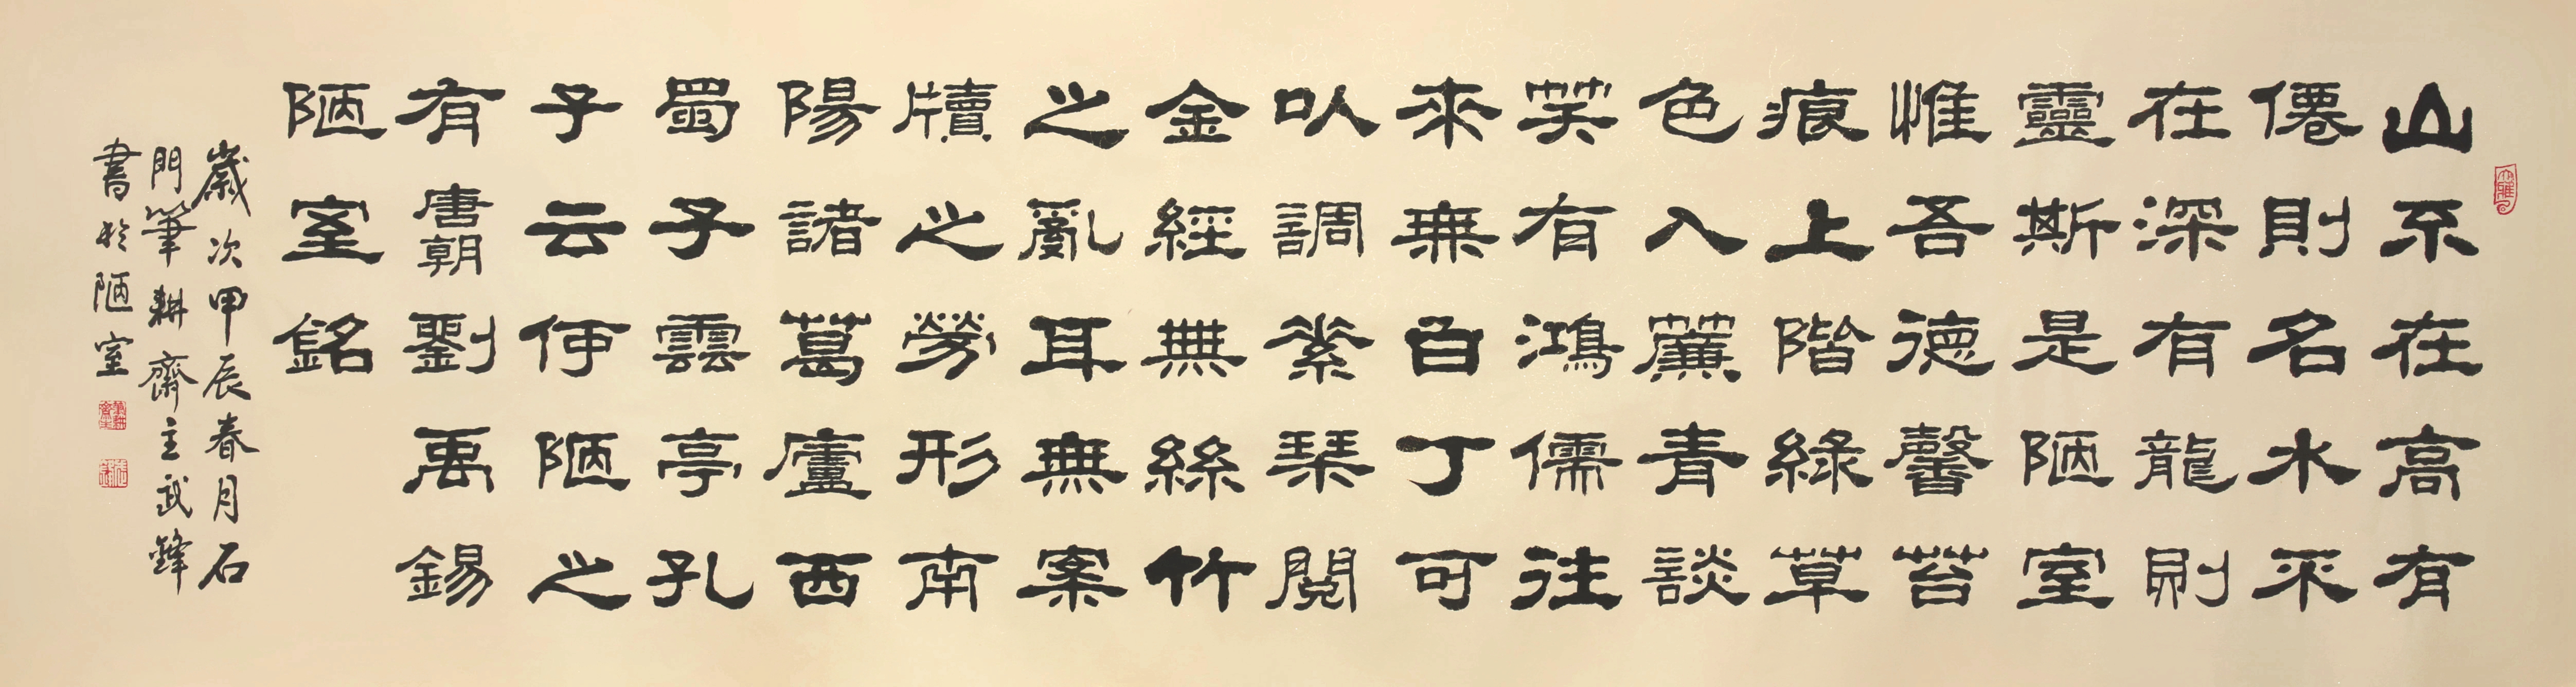 山不在高有
僊則名水不
在深有龍則
靈斯是陋室
惟吾德馨苔
痕上階綠草
色入簾青談
笑有鴻儒往
來無白丁可
以調素琴閱
金經無絲竹
之亂耳無案
牘之勞形南
陽諸葛廬西
蜀子雲亭孔
子云何陋之
有唐朝劉禹錫
陋室銘
歲次甲辰春月石
門筆耕齋主武鋒
書於陋室